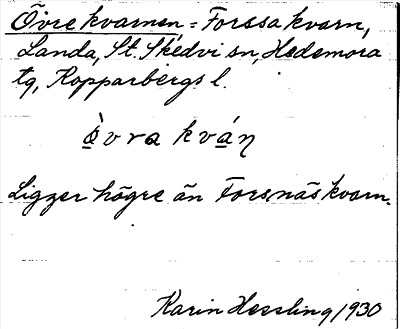 Övre kvarnen = Forssa kvarn,
Landa, St. Skedvi sn, Hedemora
tg, Kopparbergs l.
ò̱vra kvá̱ŋ
Ligger högre än Forsnäs kvarn.
Karin Hessling 1930